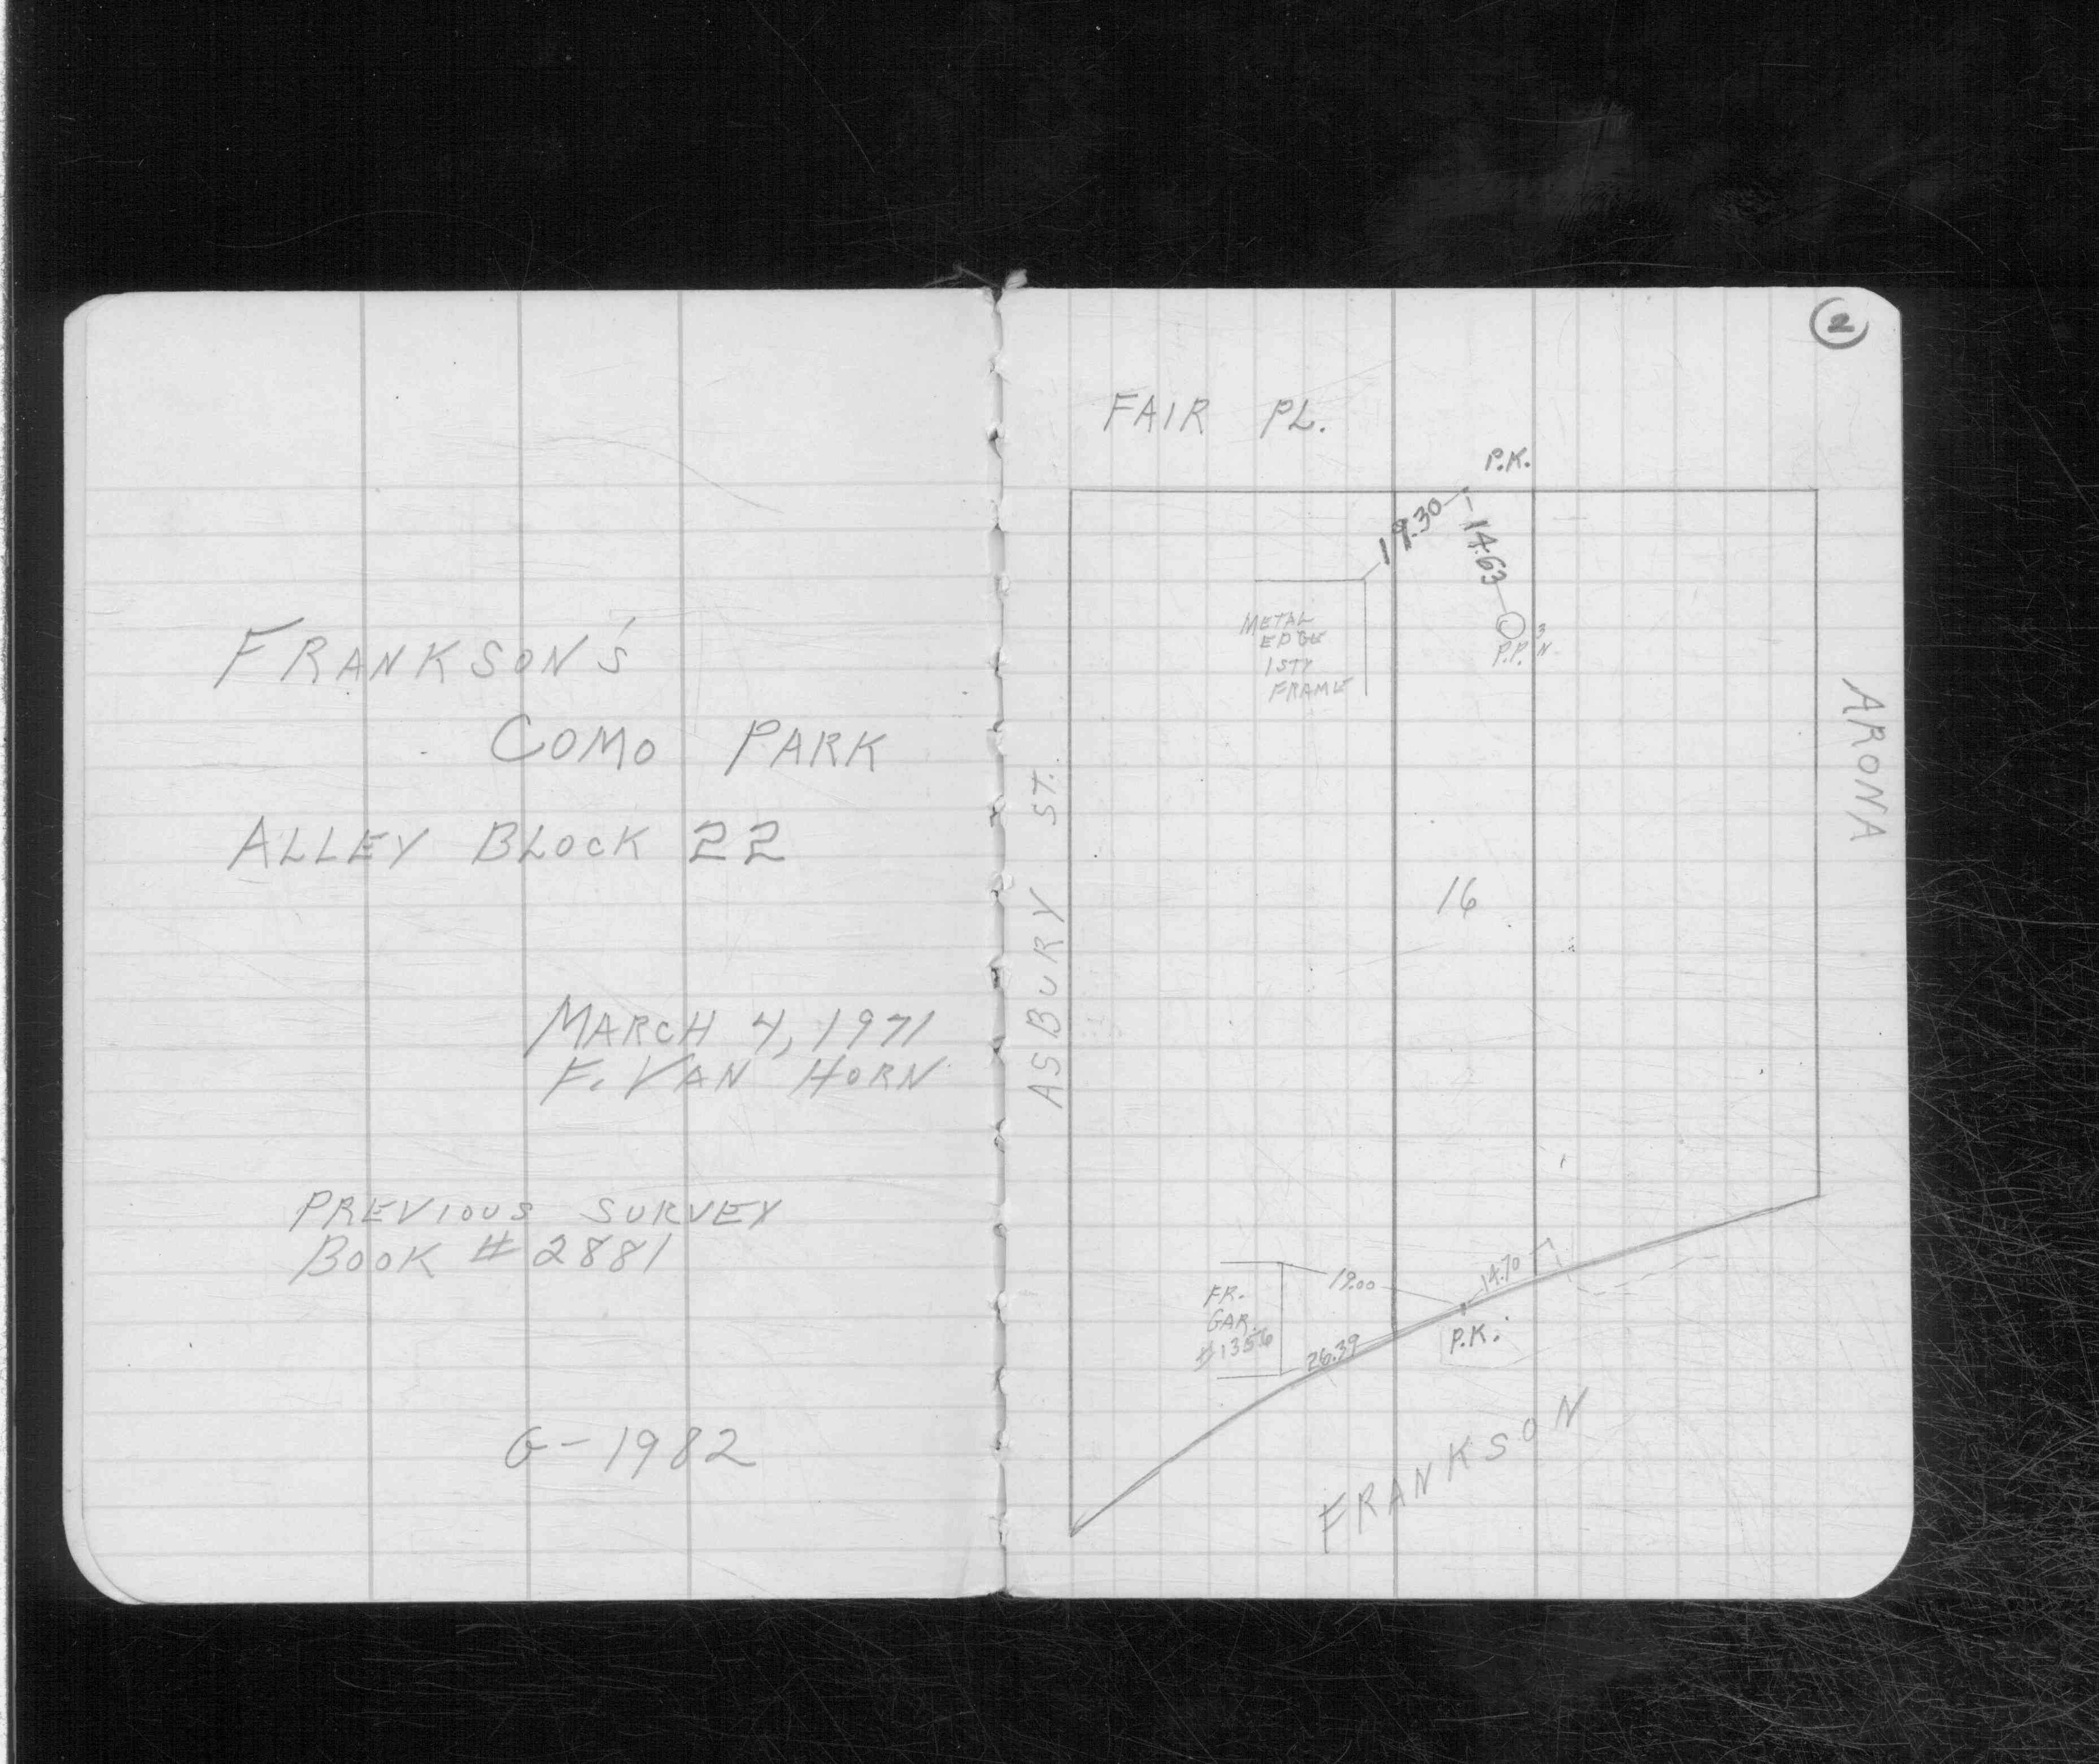 FRANKSON'S
COMO PARK
ALLEY BLOCK 22
MARCH 4, 1971
F. VAN HORN
PREVIOUS SURVEY
BOOK # 2881
G-1982
2
FAIR PL.
P.K.
19.30
14.63
METAL
EDGE
1STY
FRAME
P.P.
ARONA
ASBURY ST.
16
14.70
19.00
FR.
GAR.
#1356
26.39
P.K.
FRANKSON